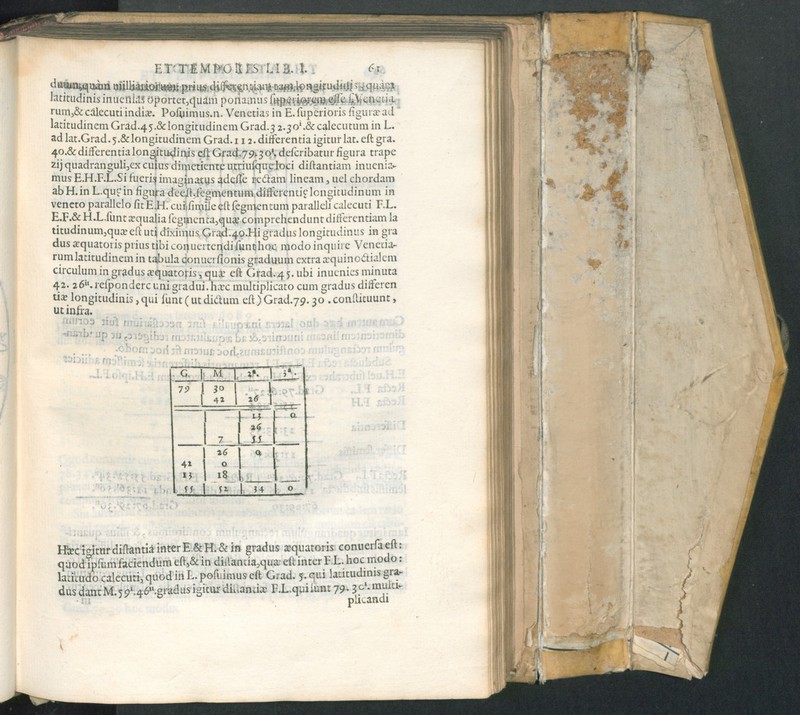 ET TEMPORIS LIB. I. 61
duum, quàm milliariorum: prius differentiam tam longitudinis, quàm
latitudinis inuenias oportet, quàm ponamus superiorem esse Venetia
rum, & calecuti indiæ. Posuimus.n. Venetias in E. superioris figuræ ad
latitudinem Grad. 45. & longitudinem Grad. 32. 30¹. & calecutum in L.
ad lat. Grad. 5. & longitudinem Grad. 112. differentia igitur lat. est gra.
40. & differentia longitudinis est Grad. 79. 30¹. describatur figura trape
zij quadranguli, ex cuius dimetiente utriusque loci distantiam inuenia-
mus E.H.F.L. Si fueris imaginatus adesse rectam lineam, uel chordam
ab H. in L. quę in figura deest. segmentum differentię longitudinum in
veneto parallelo sit E.H. cui simile est segmentum paralleli calecuti F.L.
E.F. & H.L. sunt æqualia segmenta, quæ comprehendunt differentiam la
titudinum, quæ est uti diximus Grad. 40. Hi gradus longitudinus in gra
dus æquatoris prius tibi conuertendi sunt hoc modo inquire Venetia-
rum latitudinem in tabula conuersionis graduum extra æquinoctialem
circulum in gradus æquatoris, quæ est Grad. 45. ubi inuenies minuta
42. 26ª. respondere uni gradui. hæc multiplicato cum gradus differen
tiæ longitudinis, qui sunt (ut dictum est) Grad. 79. 30. constituunt,
ut infra.
G. M 2ª. 3ª.
79 30
42 26
13 0
26
7 55
26 0
42 0
13 18
55 52 34 0
Hæc igitur distantia inter E. & H. & in gradus æquatoris conuersa est:
quod ipsum faciendum est, & in distantia, quæ est inter F.L. hoc modo:
latitudo calecuti, quod in L. posuimus est Grad. 5. qui latitudinis gra-
dus dant M. 59¹. 46ª. gradus igitur distantiæ F.L. qui sunt 79. 30¹. multi-
plicandi